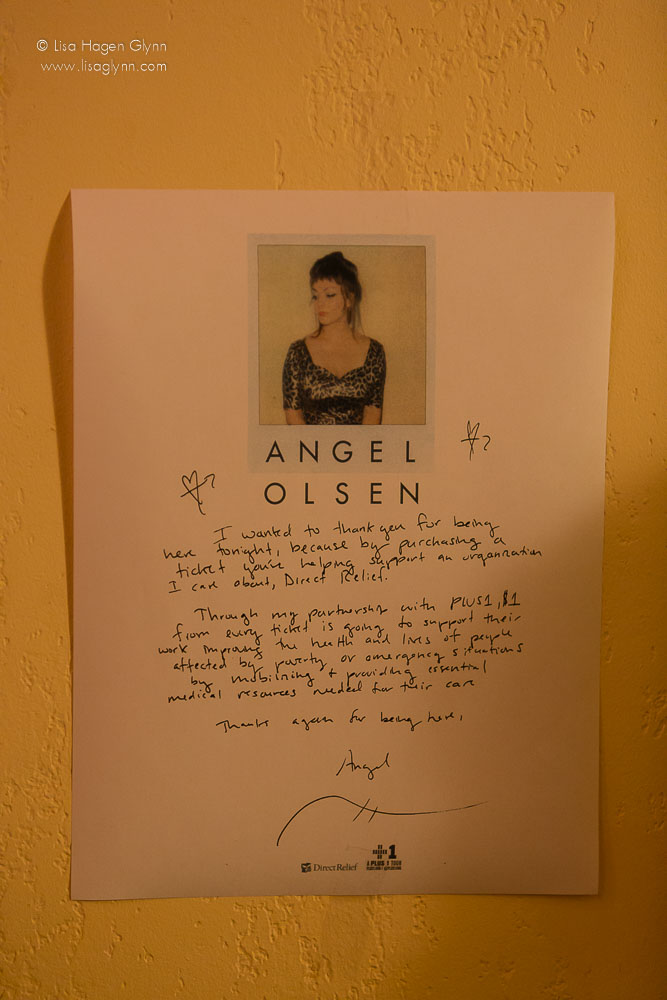 © Lisa Hagen Glynn
www.lisaglynn.com
ANGEL
OLSEN
I wanted to thank you for being
here tonight, because by purchasing a
ticket you're helping support an organization
I care about, Direct Relief.
Through my partnership with PLUS1, $1
from every ticket is going to support their
work improving the health and lives of people
affected by poverty or emergency situations
by mobilizing + providing essential
medical resources needed for their care
Thanks again for being here,
Angel
DirectRelief
+1
A PLUS 1 TOUR